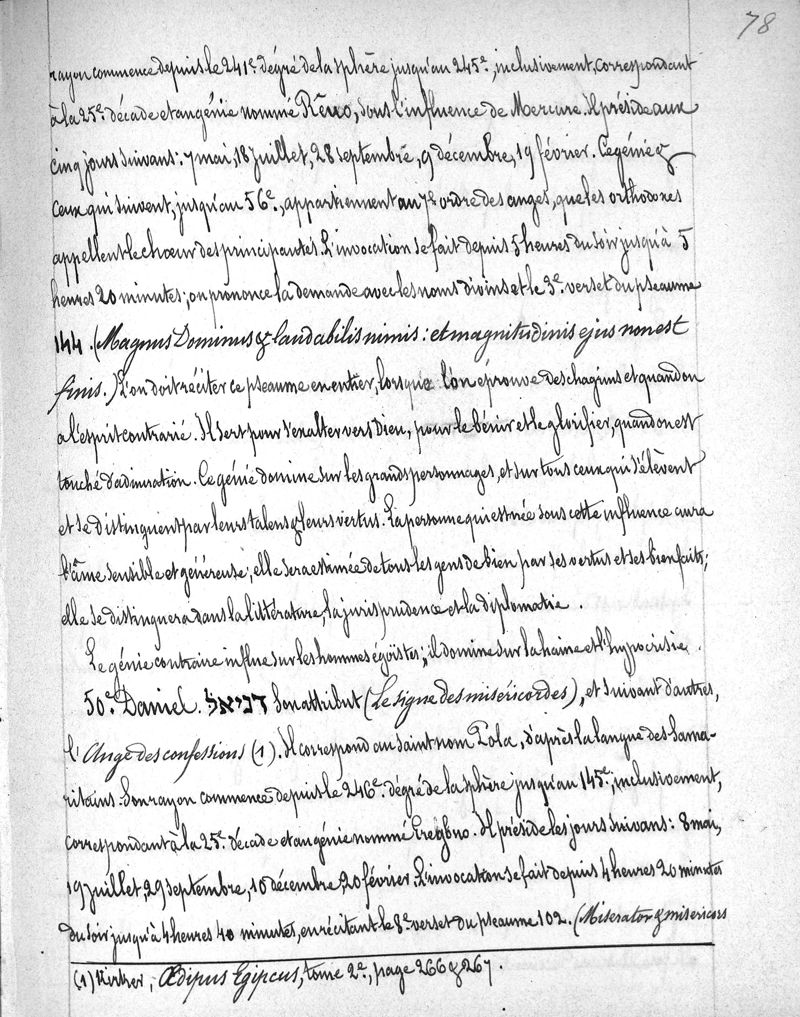 78
rayon commence depuis le 241e. dégré de la sphère jusqu'au 245e., inclusivement, correspondant
à la 25e. décade et au génie nommé Réuo, sous l'influence de Mercure. Il préside aux
cinq jours suivans : 7 mai, 18 juillet, 28 septembre, 9 décembre, 19 février. Ce génie &
ceux qui suivent, jusqu'au 56e., appartiennent au 7e. ordre des anges, que les orthodoxes
appellent le chœur des principautés. L'invocation se fait depuis 5 heures du soir jusqu'à 5
heures 20 minutes ; on prononce la demande avec les noms divins et le 3e. verset du pseaume
144. (Magnus Dominus & laudabilis nimis : et magnitudinis ejus non est
finis.) L'on doit réciter ce pseaume en entier, lorsque l'on éprouve des chagrins et quand on
a l'esprit contrarié. Il sert pour s'exalter vers Dieu, pour le bénir et le glorifier, quand on est
touché d'admiration. Ce génie domine sur les grands personnages, et sur tous ceux qui s'élèvent
et se distinguent par leurs talens & leurs vertus. La personne qui est née sous cette influence aura
l'âme sensible et généreuse ; elle sera estimée de tous les gens de bien par ses vertus et ses bienfaits ;
elle se distinguera dans la littérature, la jurisprudence et la diplomatie.
Le génie contraire influe sur les hommes égoïstes ; il domine sur la haine et l'hypocrisie.
50e. Daniel. דניאל Son attribut (Le signe des miséricordes), et suivant d'autres,
l'Ange des confessions (1). Il correspond au saint nom Pola, d'après la langue des Sama-
ritains. Son rayon commence depuis le 246e. dégré de la sphère jusqu'au 145e., inclusivement,
correspondant à la 25e. décade et au génie nommé Eregbuo. Il préside les jours suivans : 8 mai,
19 juillet, 29 septembre, 10 décembre, 20 février. L'invocation se fait depuis 4 heures 20 minutes
du soir jusqu'à 4 heures 40 minutes, en récitant le 8e. verset du pseaume 102. (Miserator & misericors
(1) Kirker, Œdipus Egipcus, tome 2e., page 266 & 267.